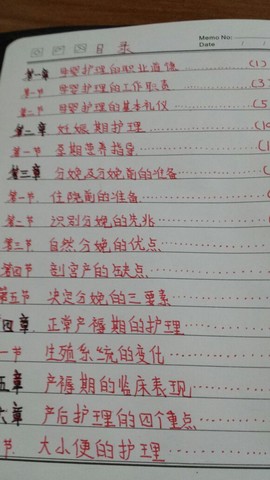 目录
Memo No.
Date / /
第一章 母婴护理的职业道德 (1)
第一节 母婴护理的工作职责 (3
第二节 母婴护理的基本礼仪 (5
第二章 妊娠期护理 (1
第一节 孕期营养指导
第三章 分娩及分娩前的准备
第一节 住院前的准备
第二节 识别分娩的先兆
第三节 自然分娩的优点
第四节 剖宫产的缺点
第五节 决定分娩的三要素
四章 正常产褥期的护理
一节 生殖系统的变化
五章 产褥期的临床表现
六章 产后护理的四个重点
节 大小便的护理